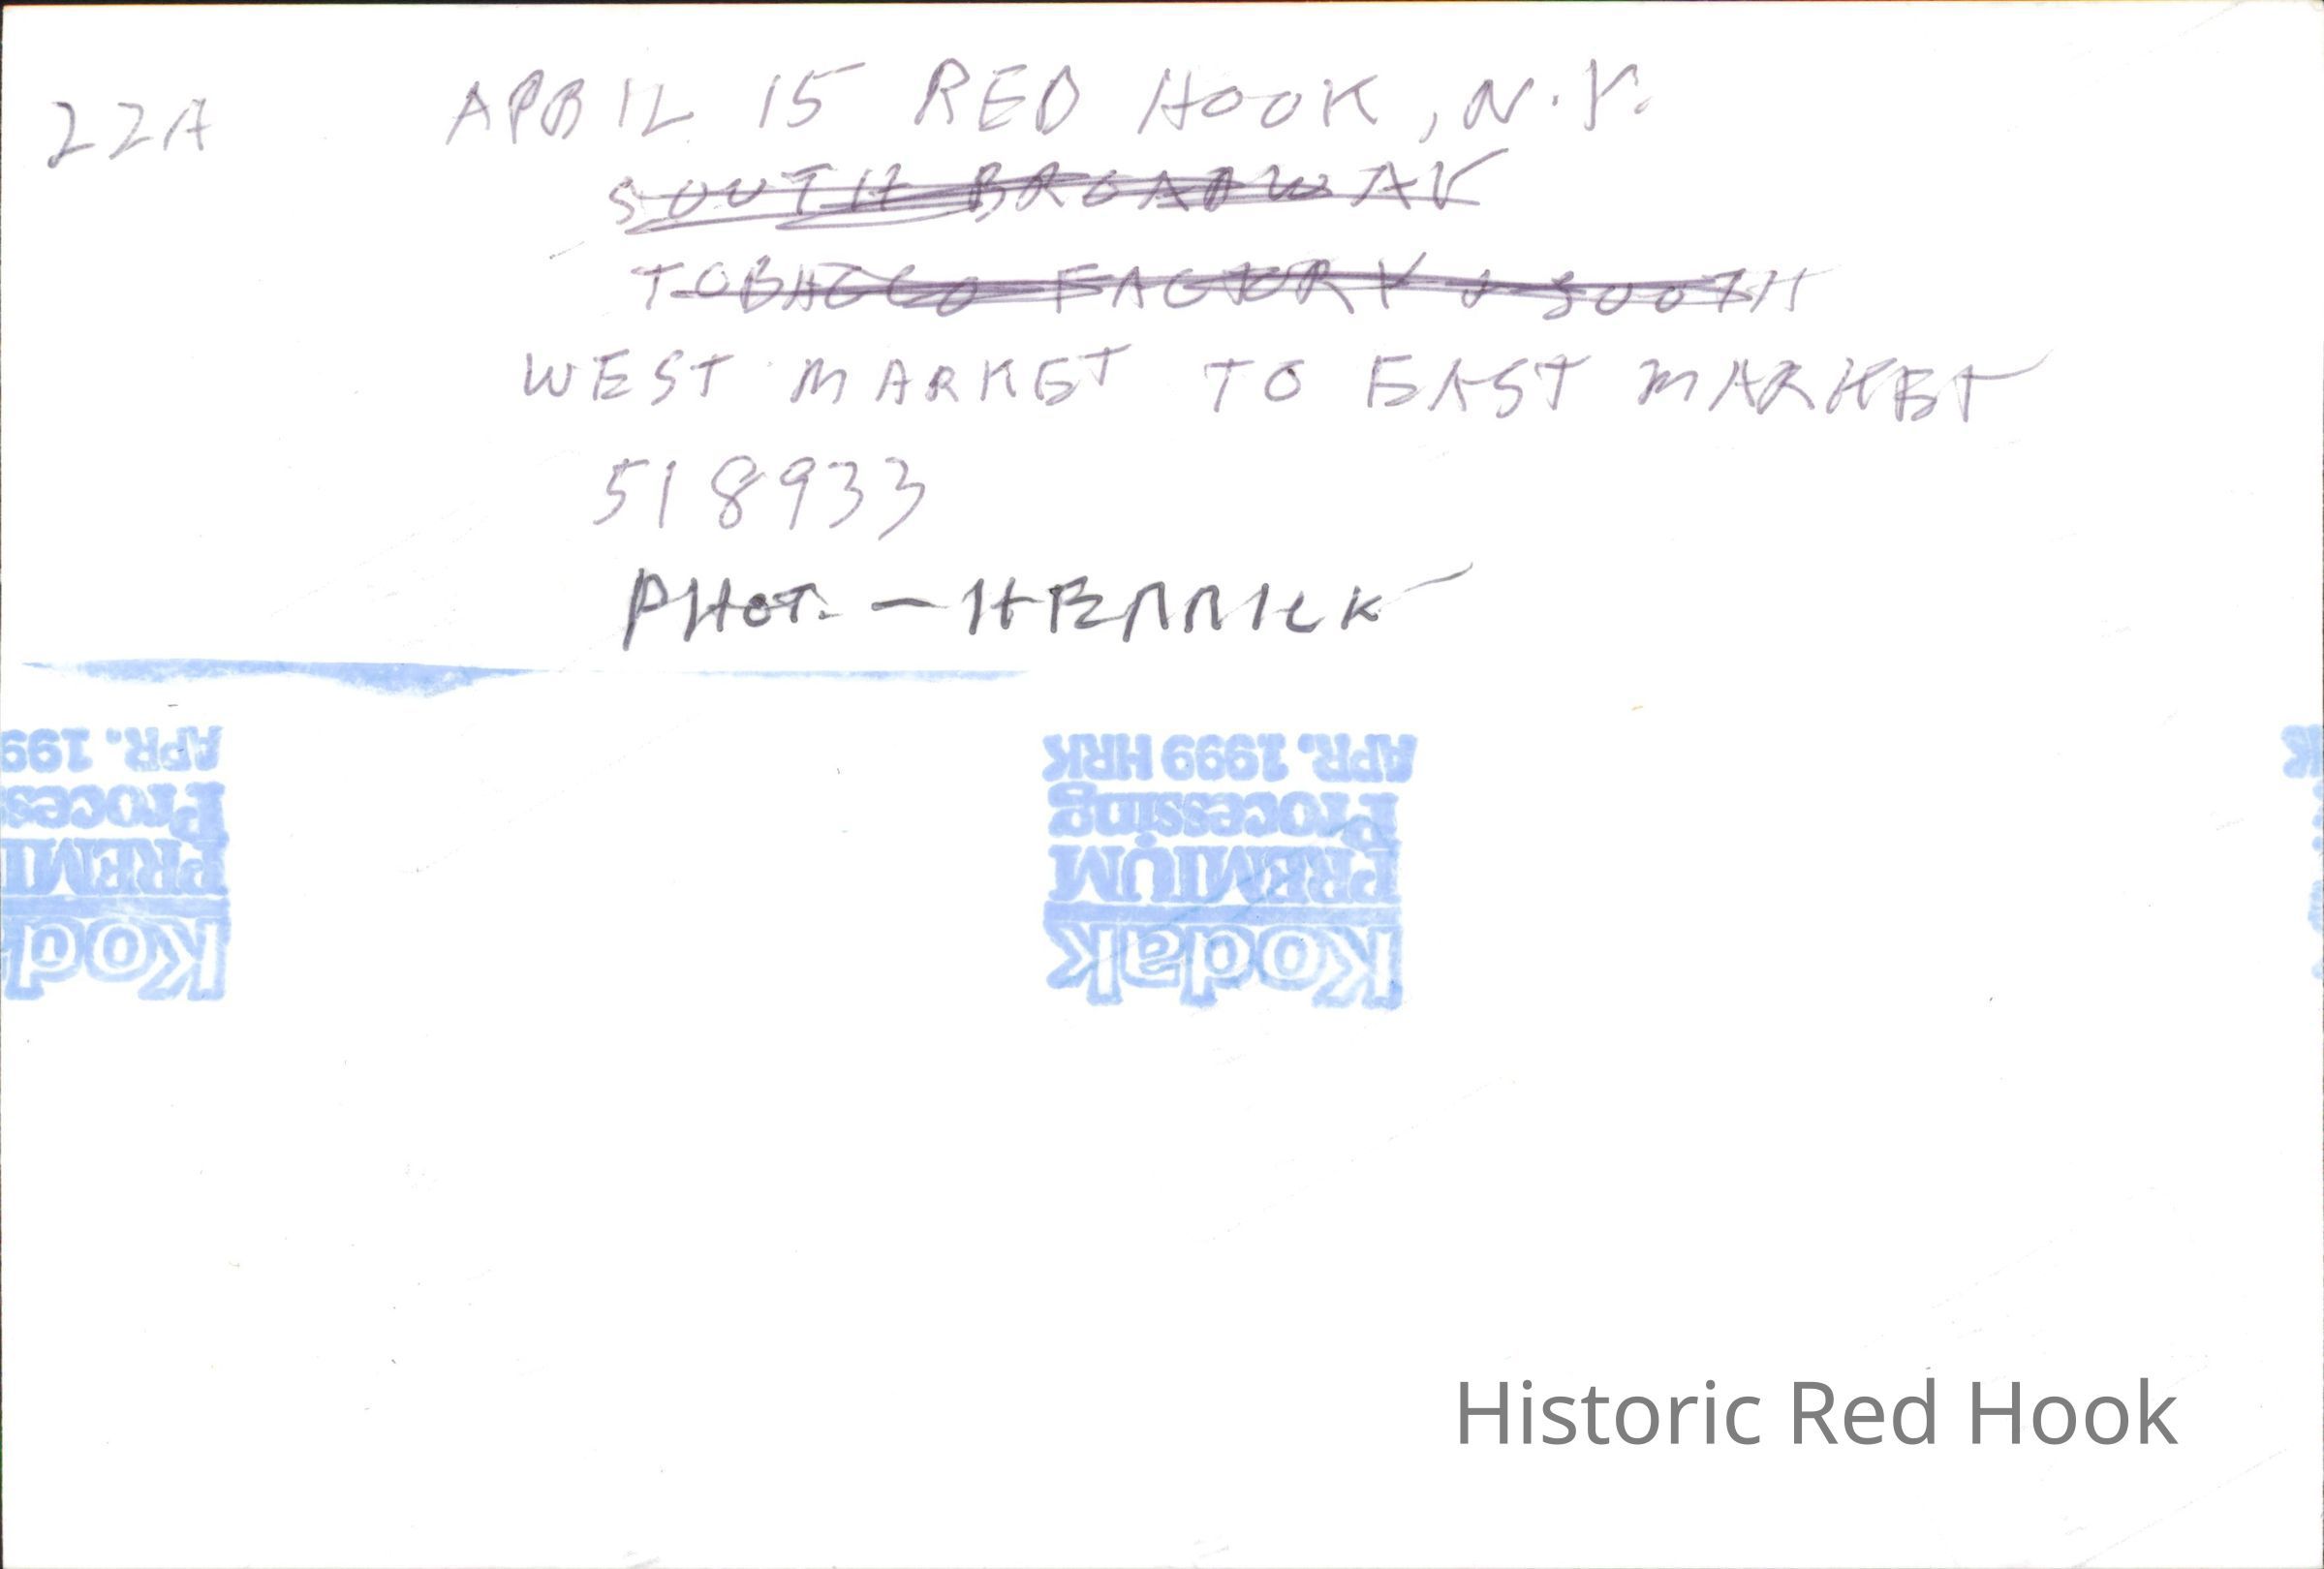 22A APRIL 15 RED HOOK, N.Y.
SOUTH BROADWAY
TOBACCO FACTORY & SOUTH
WEST MARKET TO EAST MARKET
518933
PHOT. — HERRICK
APR. 199
Proces
PREMI
Kod
APR. 1999 HRK
Processing
PREMIUM
Kodak
K
Historic Red Hook